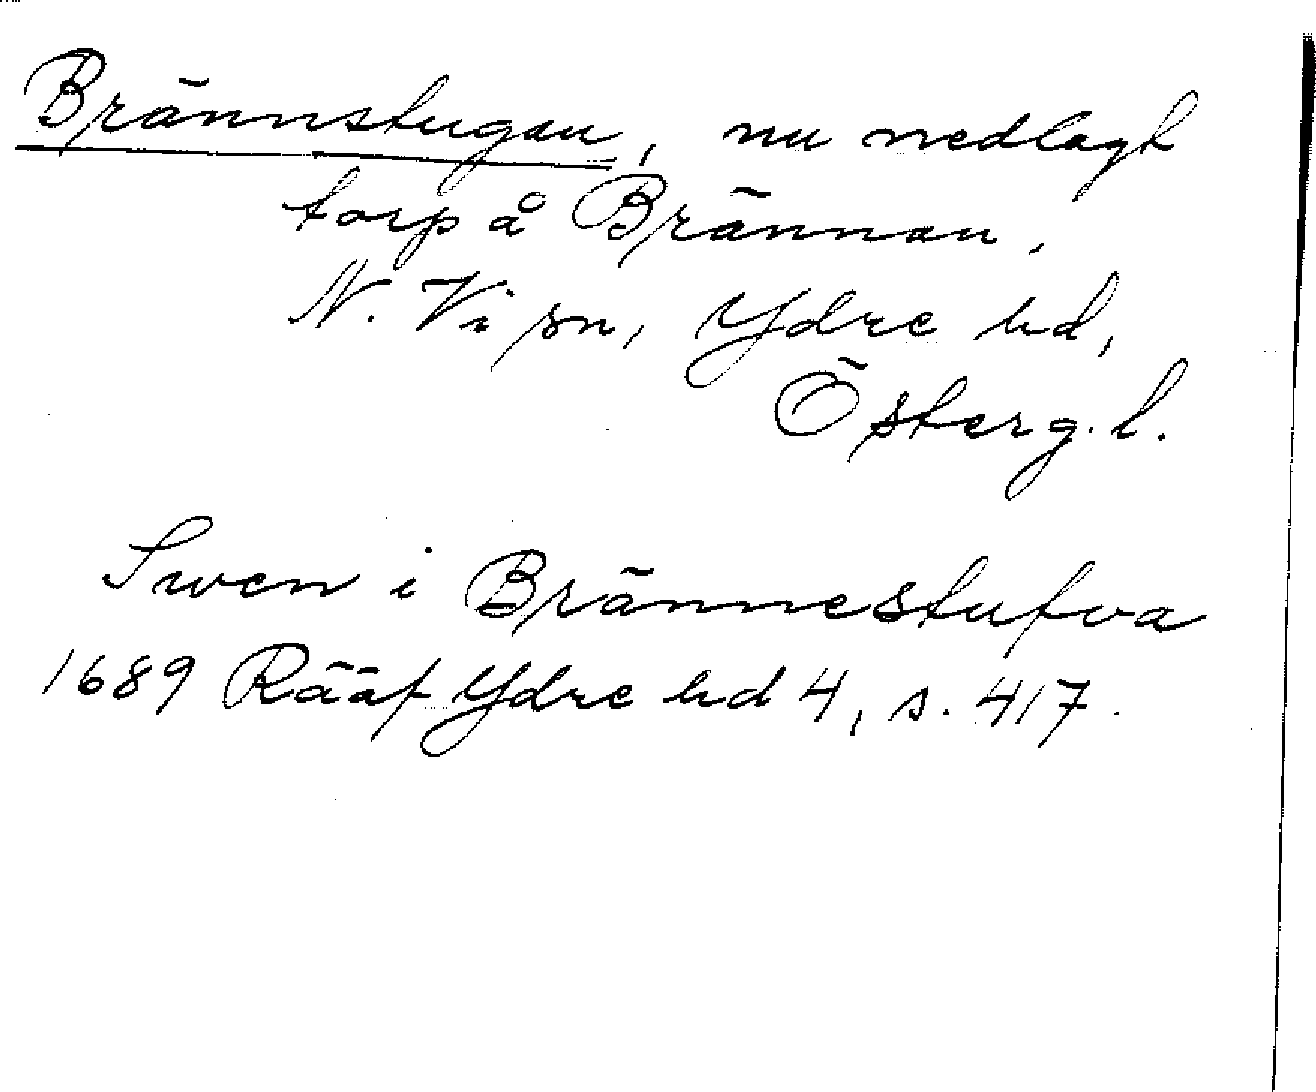 Brännstugan, nu nedlagt
torp å Brännan,
N. Vi sn, Ydre hd,
Österg. l.
Swen i Brännestufva
1689 Rääf Ydre hd 4, s. 417.